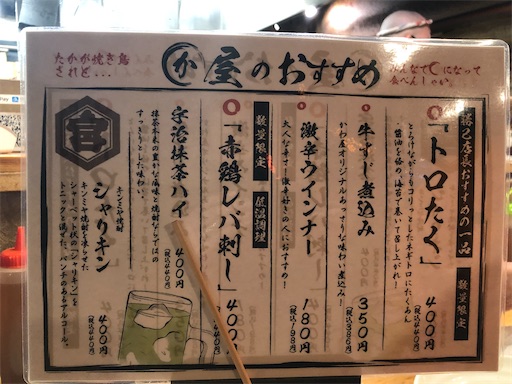 たかが焼き鳥
されど...
か屋のおすすめ
みんなで○になって
食べんしゃい
勝己店長おすすめの一品 数量限定
「トロたく」
とろけながらもコリっとしたネギトロにたくあん
醤油を絡め、海苔で巻いて召し上がれ!
400円
(税込440円)
牛すじ煮込み
かわ屋オリジナルあっさりな味わい煮込み!
350円
(税込385円)
激辛ウインナー
大人な辛さ・激辛好きの人におすすめ!
180円
(税込198円)
数量限定 低温調理
「赤鶏レバ刺し」
400
440円)
宇治抹茶ハイ
抹茶本来の豊かな風味と焼酎ならではの
すっきりとした味わい。
400円
(税込440円)
宮
キンミヤ焼酎
シャリキン
キンミヤ焼酎を凍らせた
シャーベット状の「シャリキン」を
トニックと混ぜた、パンチのあるアルコール。
400円
(税込440円)